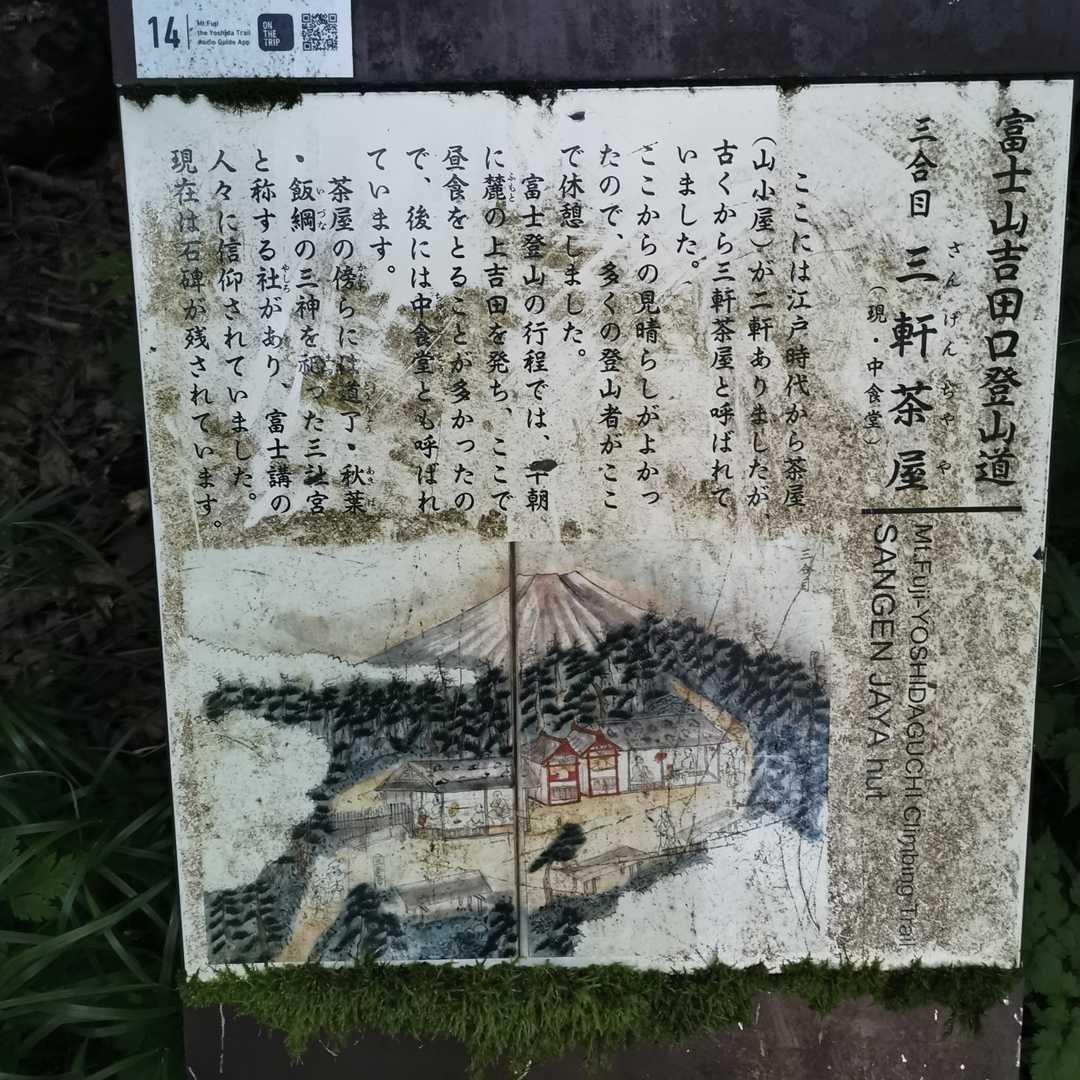 14
Mt.Fuji
the Yoshida Trail
Audio Guide App
ON
THE
TRIP
富士山吉田口登山道
三合目 三軒茶屋
さんげんちゃや
（現・中食堂）
Mt.Fuji-YOSHIDAGUCHI Climbing Trail
SANGEN JAYA hut
ここには江戸時代から茶屋
（山小屋）が二軒ありましたが、
古くから三軒茶屋と呼ばれて
いました。
ここからの見晴らしがよかっ
たので、多くの登山者がここ
で休憩しました。
富士登山の行程では、早朝
に麓の上吉田を発ち、ここで
ふもと
昼食をとることが多かったの
で、後には中食堂とも呼ばれ
ています。
茶屋の傍らには道了・秋葉
かたわ
あきば
・飯綱の三神を祀った三社宮
いづな
と称する社があり、富士講の
やしろ
人々に信仰されていました。
現在は石碑が残されています。
三合目